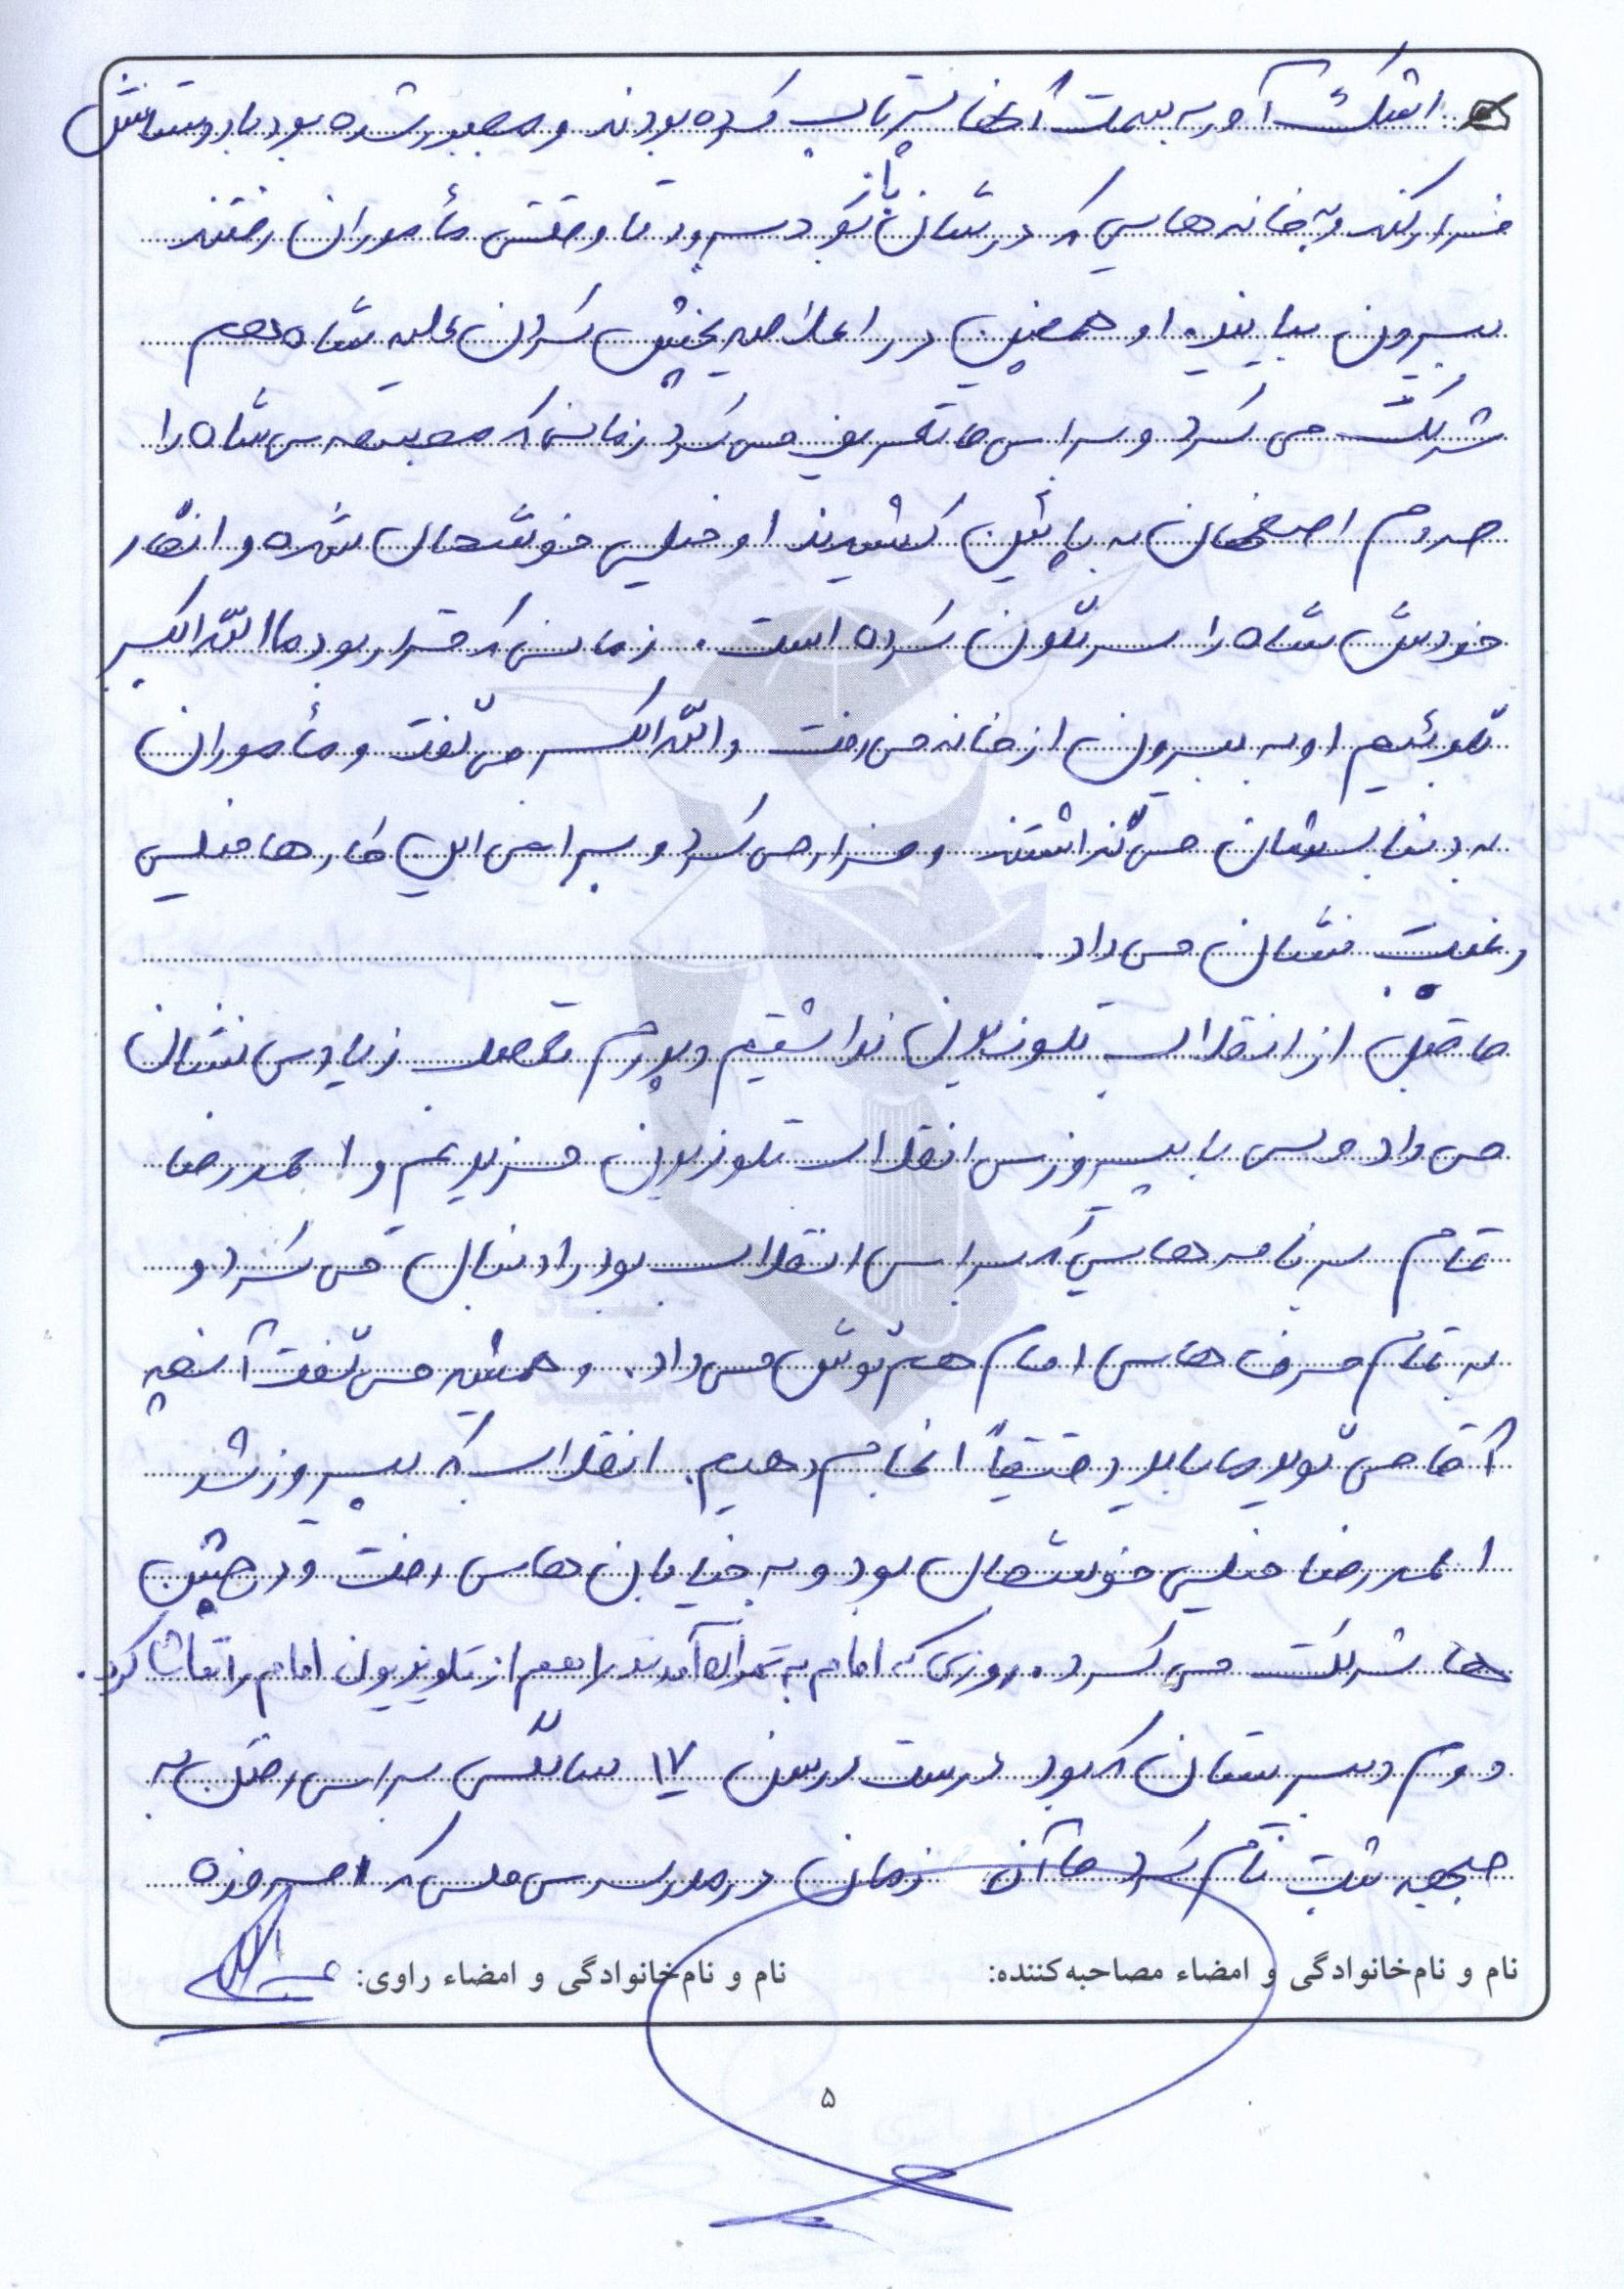 اشک آور به سمت آنها پرتاب کرده بودند و مجبور شده بود با دوستانش
فرار کند و به خانه هایی که درشان باز بود برود تا وقتی مأموران رفتند
بیرون بیایند. او همچنین در اعلامیه پخش کردن علیه شاه هم
شرکت می کرد و برای ما تعریف می کرد زمانی که مجسمه ی شاه را
مردم اصفهان به پائین کشیدند او خیلی خوشحال شده و انگار
خودش شاه را سرنگون کرده است. زمانی که قرار بود ما الله اکبر
بگوئیم او به بیرون از خانه می رفت و الله اکبر می گفت و مأموران
به دنبالشان می گذاشتند و فرار می کرد و برای این کارها خیلی
رغبت نشان می داد.
ما قبل از انقلاب تلوزیون نداشتیم و پدرم تعصب زیادی نشان
می داد ولی با پیروزی انقلاب تلوزیون خریدیم و احمدرضا
تمام برنامه هایی که برای انقلاب بود را دنبال می کرد و
به تمام حرف های امام هم گوش می داد. و همیشه می گفت آنچه
آقا می گوید ما باید دقیقاً انجام دهیم. انقلاب که پیروز شد
احمدرضا خیلی خوشحال بود و به خیابان های رفت و در جشن
ها شرکت می کرد. روزی که امام به تهران آمدند را هم از تلویزیون امام را تماشا کرد.
دوم دبیرستان که بود درست در سن ۱۷ سالگی برای رفتن به
جبهه ثبت نام کرد ما آن زمان در مدرسه ی ملی که امروزه
نام و نام‌خانوادگی و امضاء مصاحبه‌کننده:
نام و نام‌خانوادگی و امضاء راوی:
۵